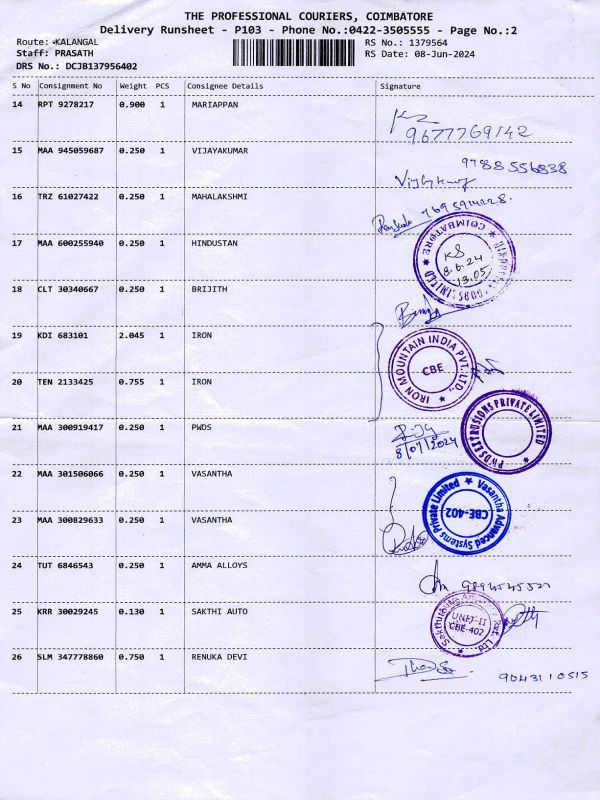 THE PROFESSIONAL COURIERS, COIMBATORE
Delivery Runsheet - P103 - Phone No.:0422-3505555 - Page No.:2
Route: KALANGAL
Staff: PRASATH
DRS No.: DCJB137956402
RS No.: 1379564
RS Date: 08-Jun-2024
S No Consignment No Weight PCS Consignee Details Signature
14 RPT 9278217 0.900 1 MARIAPPAN
9677769142
15 MAA 945059687 0.250 1 VIJAYAKUMAR
9788556838
16 TRZ 61027422 0.250 1 MAHALAKSHMI
17 MAA 600255940 0.250 1 HINDUSTAN
COIMBATORE
LIMITED
KS
8.6.24
13.05
18 CLT 30340667 0.250 1 BRIJITH
19 KDI 683101 2.045 1 IRON
IRON MOUNTAIN INDIA PVT. LTD.,
CBE
20 TEN 2133425 0.755 1 IRON
21 MAA 300919417 0.250 1 PWDS
8/07/2024
PWDS EXTRUSIONS PRIVATE LIMITED
22 MAA 301506066 0.250 1 VASANTHA
Vasantha Advanced Systems Private Limited
CBE-402
23 MAA 300829633 0.250 1 VASANTHA
24 TUT 6846543 0.250 1 AMMA ALLOYS
25 KRR 30029245 0.130 1 SAKTHI AUTO
UNIT-II
CBE-402
26 SLM 347778860 0.750 1 RENUKA DEVI
9043110515